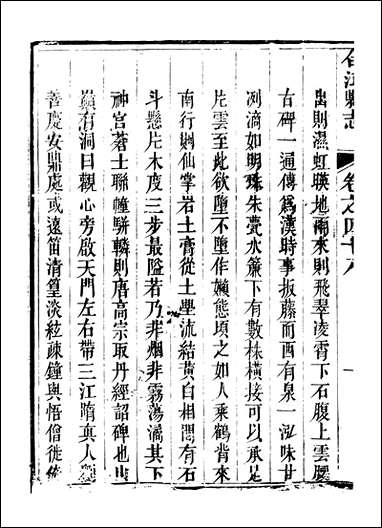 合江縣志 卷之四十八 一
出則濕虹暎地雨來則飛翠凌霄下石腹上雲腰
古碑一通傳爲漢時事扳藤而酉有泉一泓味甘
冽滴如明珠朱甍水簾下有數株橫接可以承足
片雲至此欲墮不墮作嬾態頃之如人乘鶴背來
南行則仙掌岩土膏從土壘流結黃白相間有石
斗懸片木度三步最隘若乃非烟非霧蕩潏其下
神宮蒼士聯幢騈轔則唐高宗取丹經詔碑也山
巔有洞曰觀心旁啟天門左右帶三江隋真人劉
善慶安鼎處或遠笛清篁淡絃疎鐘與悟僧徙倚